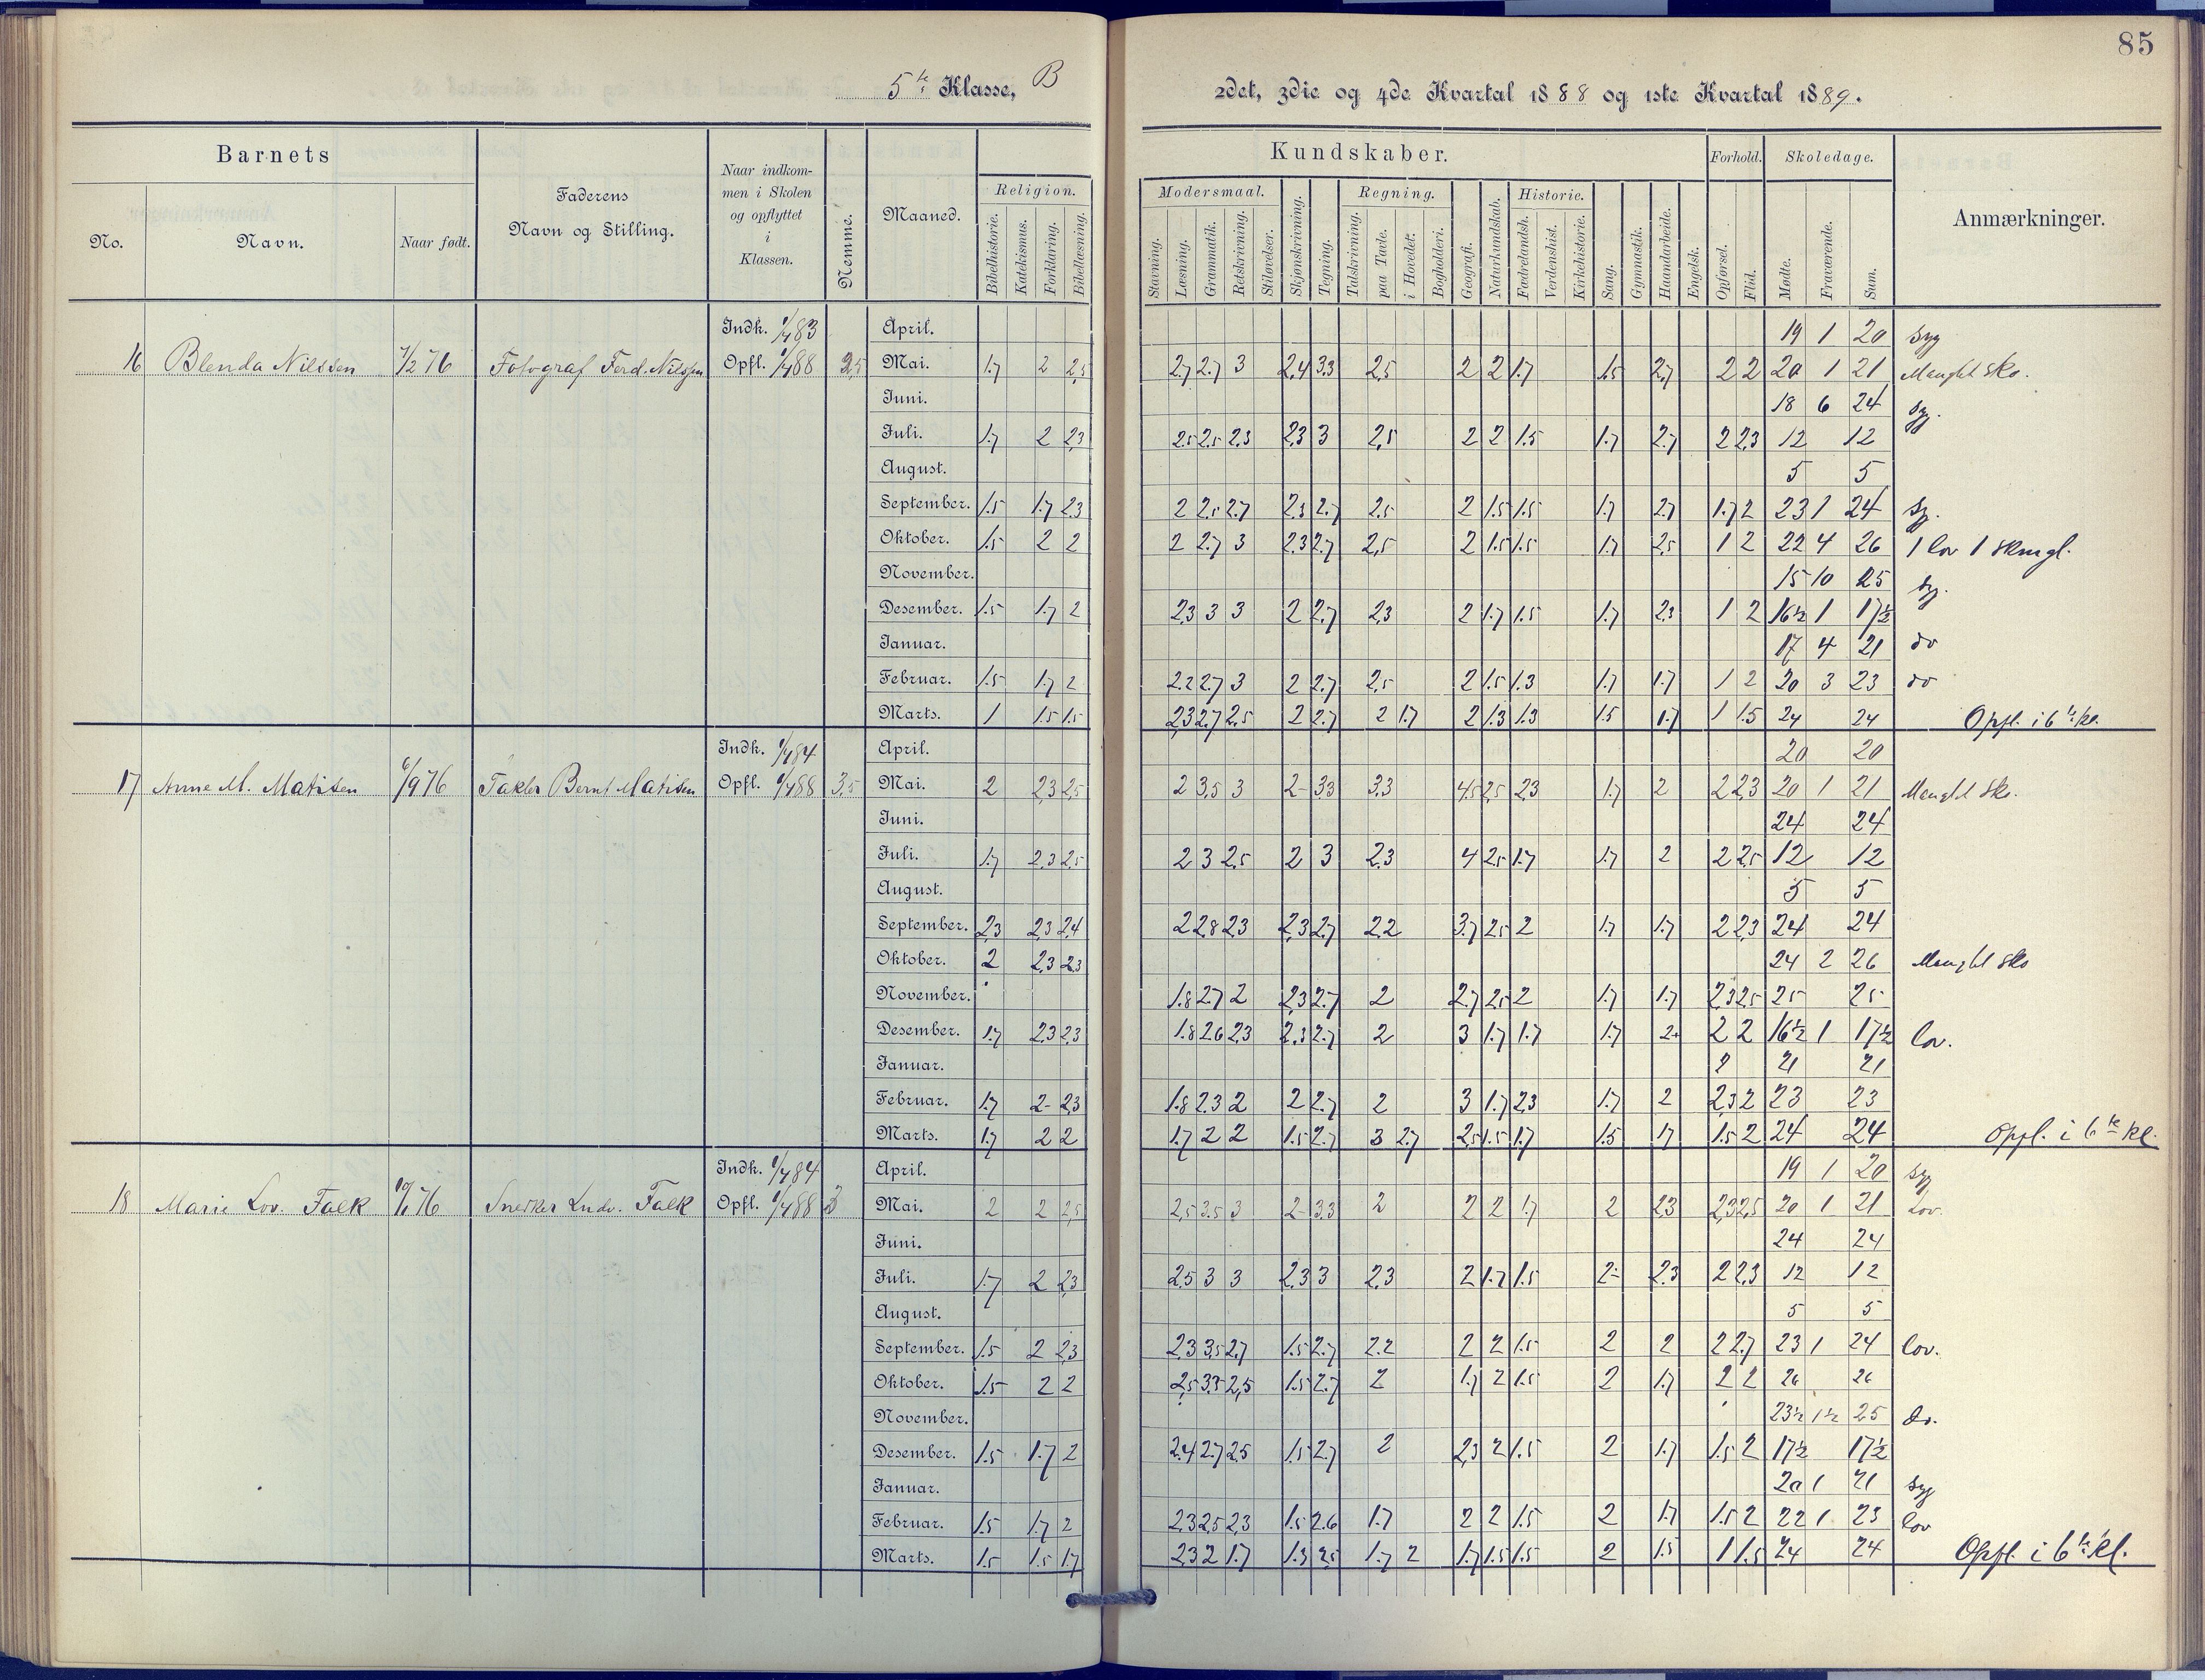 85
5te Klasse, B
2det, 3die og 4de Kvartal 1888 og 1ste Kvartal 1889.
Barnets
No.
Navn.
Naar født.
Faderens
Navn og Stilling.
Naar indkom-
men i Skolen
og opflyttet
i
Klassen.
Nemme.
Maaned.
Kundskaber.
Religion.
Bibelhistorie.
Katekismus.
Forklaring.
Bibellæsning.
Modersmaal.
Stavning.
Læsning.
Grammatik.
Retskrivning.
Stiløvelser.
Skjønskrivning.
Tegning.
Regning.
Talskrivning.
paa Tavle.
i Hovedet.
Bogholderi.
Geografi.
Naturkundskab.
Historie.
Fædrelandsh.
Verdenshist.
Kirkehistorie.
Sang.
Gymnastik.
Haandarbeide.
Engelsk.
Forhold.
Opførsel.
Flid.
Skoledage.
Mødte.
Fraværende.
Sum.
Anmærkninger.
16 Blenda Nilssen 7/2 76 Fotograf Ferd. Nilssen Indk. 1/4 83 Opfl. 1/4 88 2,5
April. 19 1 20 Syg
Mai. 1.7 2 2,5 2.7 2.7 3 2,4 3.3 2,5 2 2 1.7 1.5 2.7 2 2 20 1 21 Manglet sko.
Juni. 18 6 24 Syg.
Juli. 1.7 2 2,3 2.5 2.5 2.3 2,3 3 2,5 2 2 1.5 1.7 2.7 2 2,3 12 12
August. 5 5
September. 1.5 1.7 2.3 2 2.5 2.7 2.3 2.7 2.5 2 1.5 1.5 1.7 2.7 1.7 2 23 1 24 Sy.
Oktober. 1.5 2 2 2 2.7 3 2.3 2.7 2,5 2 1.5 1.5 1.7 2,5 1 2 22 4 26 1 lov 1 skmgl.
November. 15 10 25 Syg.
Desember. 1.5 1.7 2 2,3 3 3 2 2.7 2,3 2 1.7 1.5 1.7 2.3 1 2 16½ 1 17½
Januar. 17 4 21 do
Februar. 1.5 1.7 2 2.2 2.7 3 2 2.7 2,5 2 1.5 1.3 1.7 1.7 1 2 20 3 23 do
Marts. 1 1.5 1.5 2,3 2.7 2,5 2 2.7 2 1.7 2 1.3 1.3 1.5 1.7 1 1.5 24 24 Opfl. i 6te kl.
17 Anne M. Matisen 6/9 76 Takler Bernt Matisen Indk. 1/4 84 Opfl. 1/4 88 3,5
April. 20 20
Mai. 2 2,3 2,5 2 3,5 3 2- 3,3 3,3 4,5 2,5 2,3 1.7 2 2 2,3 20 1 21 Manglet sko.
Juni. 24 24
Juli. 1.7 2.3 2.5 2 3 2.5 2 3 2,3 4 2.5 1.7 1.7 2 2 2,5 12 12
August. 5 5
September. 2,3 2,3 2,4 2 2.8 2.3 2,3 2.7 2.2 3.7 2.5 2 1.7 1.7 2 2,3 24 24
Oktober. 2 2,3 2.3 24 2 26 Manglet sko
November. 1.8 2.7 2 2,3 2.7 2 2.7 2.5 2 1.7 1.7 2,3 2.5 25 25
Desember. 1.7 2.3 2.3 1.8 2.6 2.3 2.3 2.7 2 3 1.7 1.7 1.7 2+ 2 2 16½ 1 17½ lov.
Januar. 2 21 21
Februar. 1.7 2- 2.3 1.8 2.3 2 2 2.7 2 3 1.7 2.3 1.7 2 2,3 2 23 23
Marts. 1.7 2 2 1.7 2 2 1.5 2.7 3 2.7 2,5 1.5 1.7 1.5 1.7 1.5 2 24 24 Opfl. i 6te kl.
18 Marie Lov. Falk 10/1 76 Snedker Ludv. Falk Indk. 1/4 84 Opfl. 1/4 88 3
April. 19 1 20 Syg
Mai. 2 2 2,5 2,5 3.5 3 2- 3.3 2 2 2 1.7 2 2.3 2,3 2,5 20 1 21 Lov.
Juni. 24 24
Juli. 1.7 2 2,3 2.5 3 3 2,3 3 2,3 2 1.7 1.5 2- 2.3 2 2,3 12 12
August. 5 5
September. 1.5 2 2,3 2,3 3,5 2,7 1.5 2.7 2.2 2 2 1.5 2 2 2 2.7 23 1 24 lov.
Oktober. 1.5 2 2 2,5 3.3 2,5 1.5 2.7 2 1.7 2 1.5 2 1.7 2 2 26 26
November. 23½ 1½ 25 do.
Desember. 1.5 1.7 2 2.4 2.7 2.5 1.5 2.7 2 2,3 2 1.5 2 1.7 1.5 2 17½ 17½
Januar. 20 1 21 syg
Februar. 1.5 1.7 2 2.3 2.5 2.3 1.5 2.6 1.7 2 2 1.5 2 1.7 1.5 2 22 1 23 lov
Marts. 1.5 1.5 1.7 2.3 2 1.7 1.3 2.5 1.7 2 1.7 1.5 1.5 2 1.5 1 1.5 24 24 Opfl. i 6te kl.